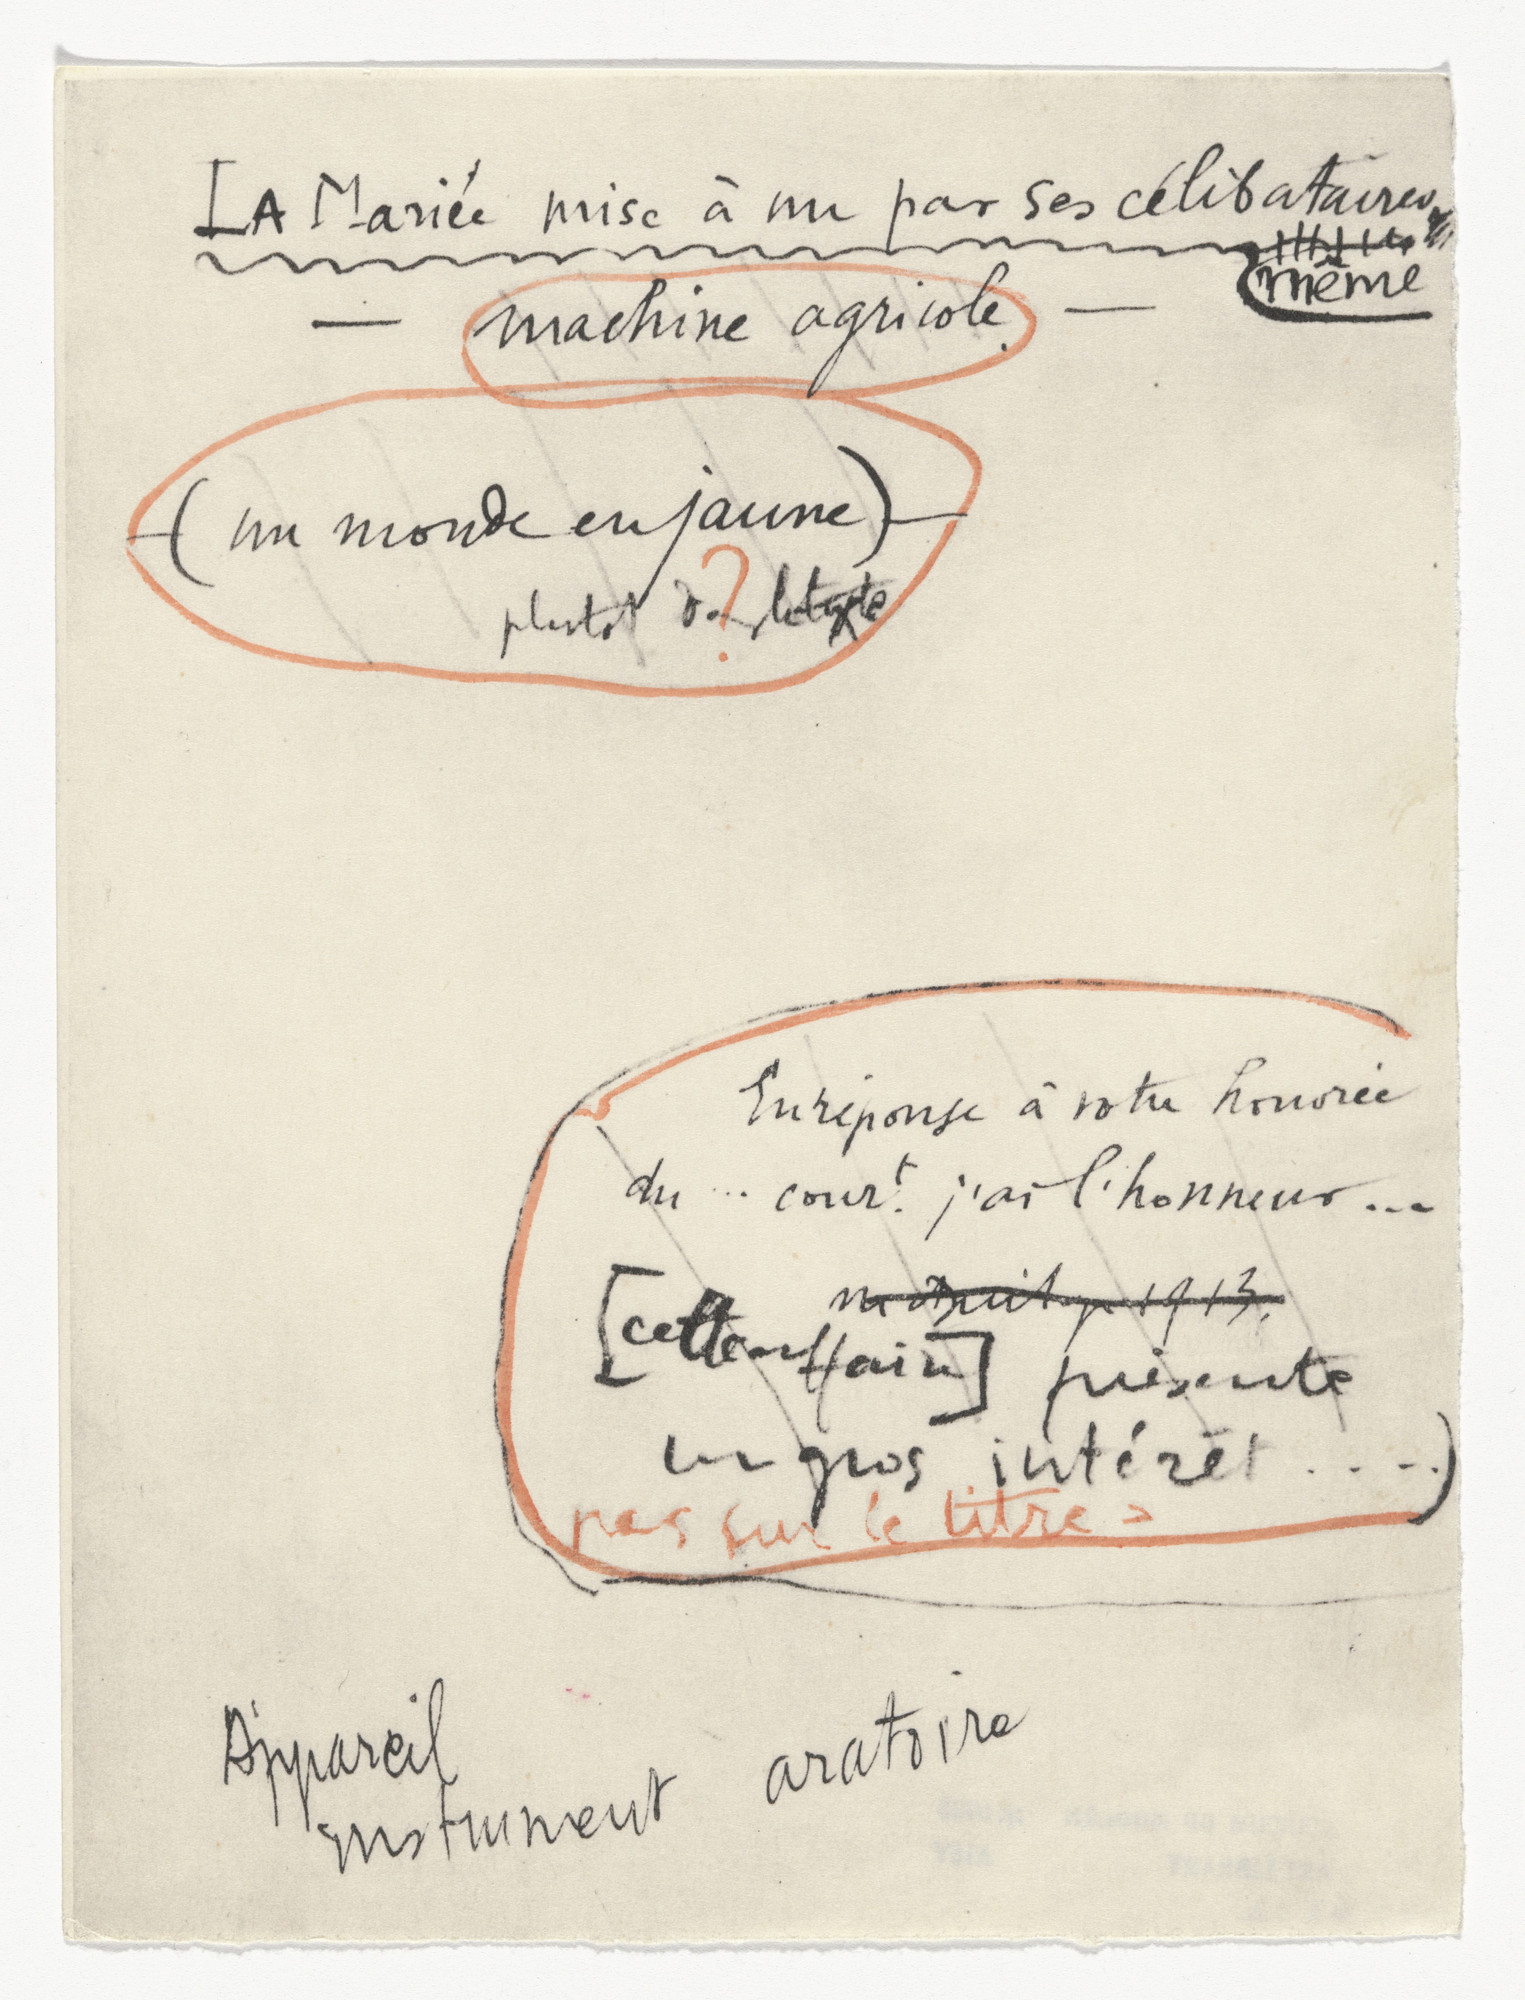 LA Mariée mise à nu par ses célibataires
même
— machine agricole —
(un monde en jaune)
plutôt dans le texte
?
En réponse à votre honorée
du ... cour.t j'ai l'honneur ...
1913.
[cette affaire] présente
un gros intérêt .....)
pas sur le titre
Appareil
instrument aratoire